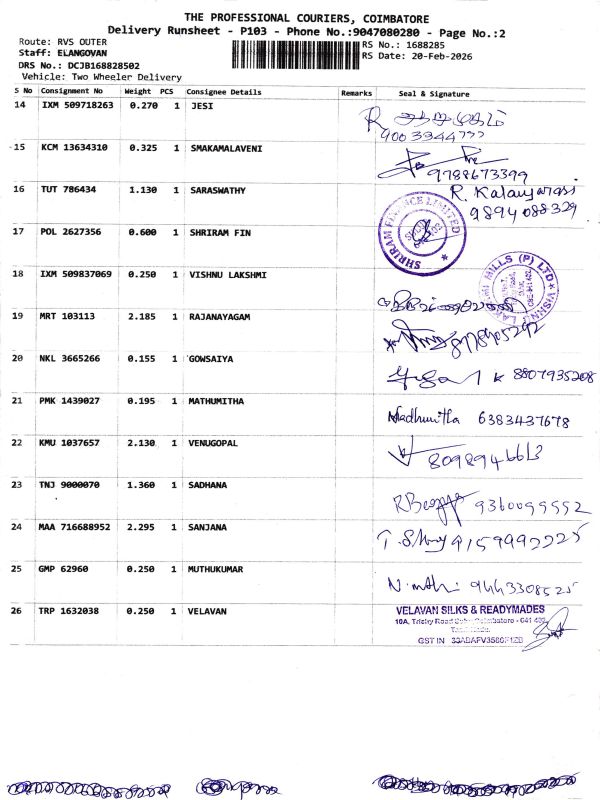 THE PROFESSIONAL COURIERS, COIMBATORE
Delivery Runsheet - P103 - Phone No.:9047080280 - Page No.:2
Route: RVS OUTER
Staff: ELANGOVAN
DRS No.: DCJB168828502
Vehicle: Two Wheeler Delivery
RS No.: 1688285
RS Date: 20-Feb-2026
S No Consignment No Weight PCS Consignee Details Remarks Seal & Signature
14 IXM 509718263 0.270 1 JESI
9003944777
15 KCM 13634310 0.325 1 SMAKAMALAVENI
9788673399
16 TUT 786434 1.130 1 SARASWATHY R. Kalaiyarasi
9894088329
17 POL 2627356 0.600 1 SHRIRAM FIN
SHRIRAM FINANCE LIMITED
18 IXM 509837069 0.250 1 VISHNU LAKSHMI
VISHNU LAKSHMI MILLS (P) LTD
19 MRT 103113 2.185 1 RAJANAYAGAM
20 NKL 3665266 0.155 1 GOWSAIYA
8807935208
21 PMK 1439027 0.195 1 MATHUMITHA
Madhumitha 6383437678
22 KMU 1037657 2.130 1 VENUGOPAL
8098946613
23 TNJ 9000070 1.360 1 SADHANA
9360099552
24 MAA 716688952 2.295 1 SANJANA
9159997725
25 GMP 62960 0.250 1 MUTHUKUMAR
9443308525
26 TRP 1632038 0.250 1 VELAVAN
VELAVAN SILKS & READYMADES
10A, Trichy Road Coimbatore - 641 402
GST IN